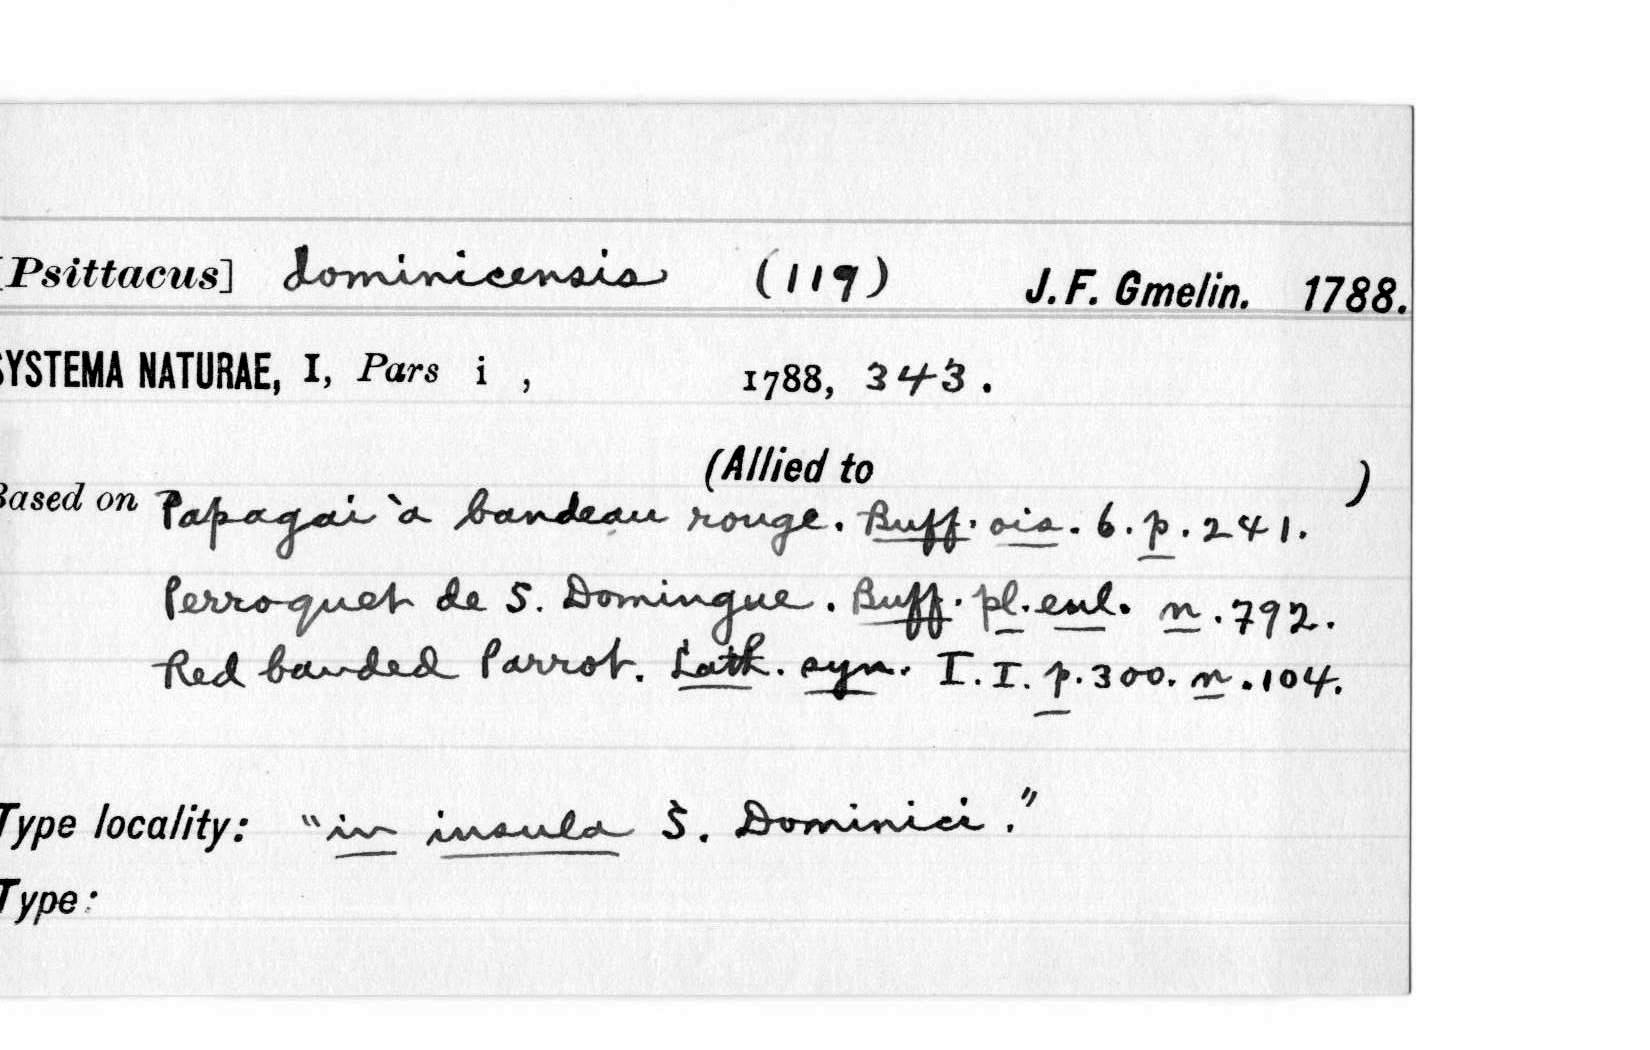 [Psittacus] dominicensis (119) J. F. Gmelin. 1788.
SYSTEMA NATURAE, I, Pars i , 1788, 343.
(Allied to )
Based on Papagai à bandeau rouge. Buff. ois. 6. p. 241.
Perroquet de S. Domingue. Buff. pl. enl. n. 792.
Red banded Parrot. Lath. syn. I. I. p. 300. n. 104.
Type locality: "in insula S. Dominici."
Type: